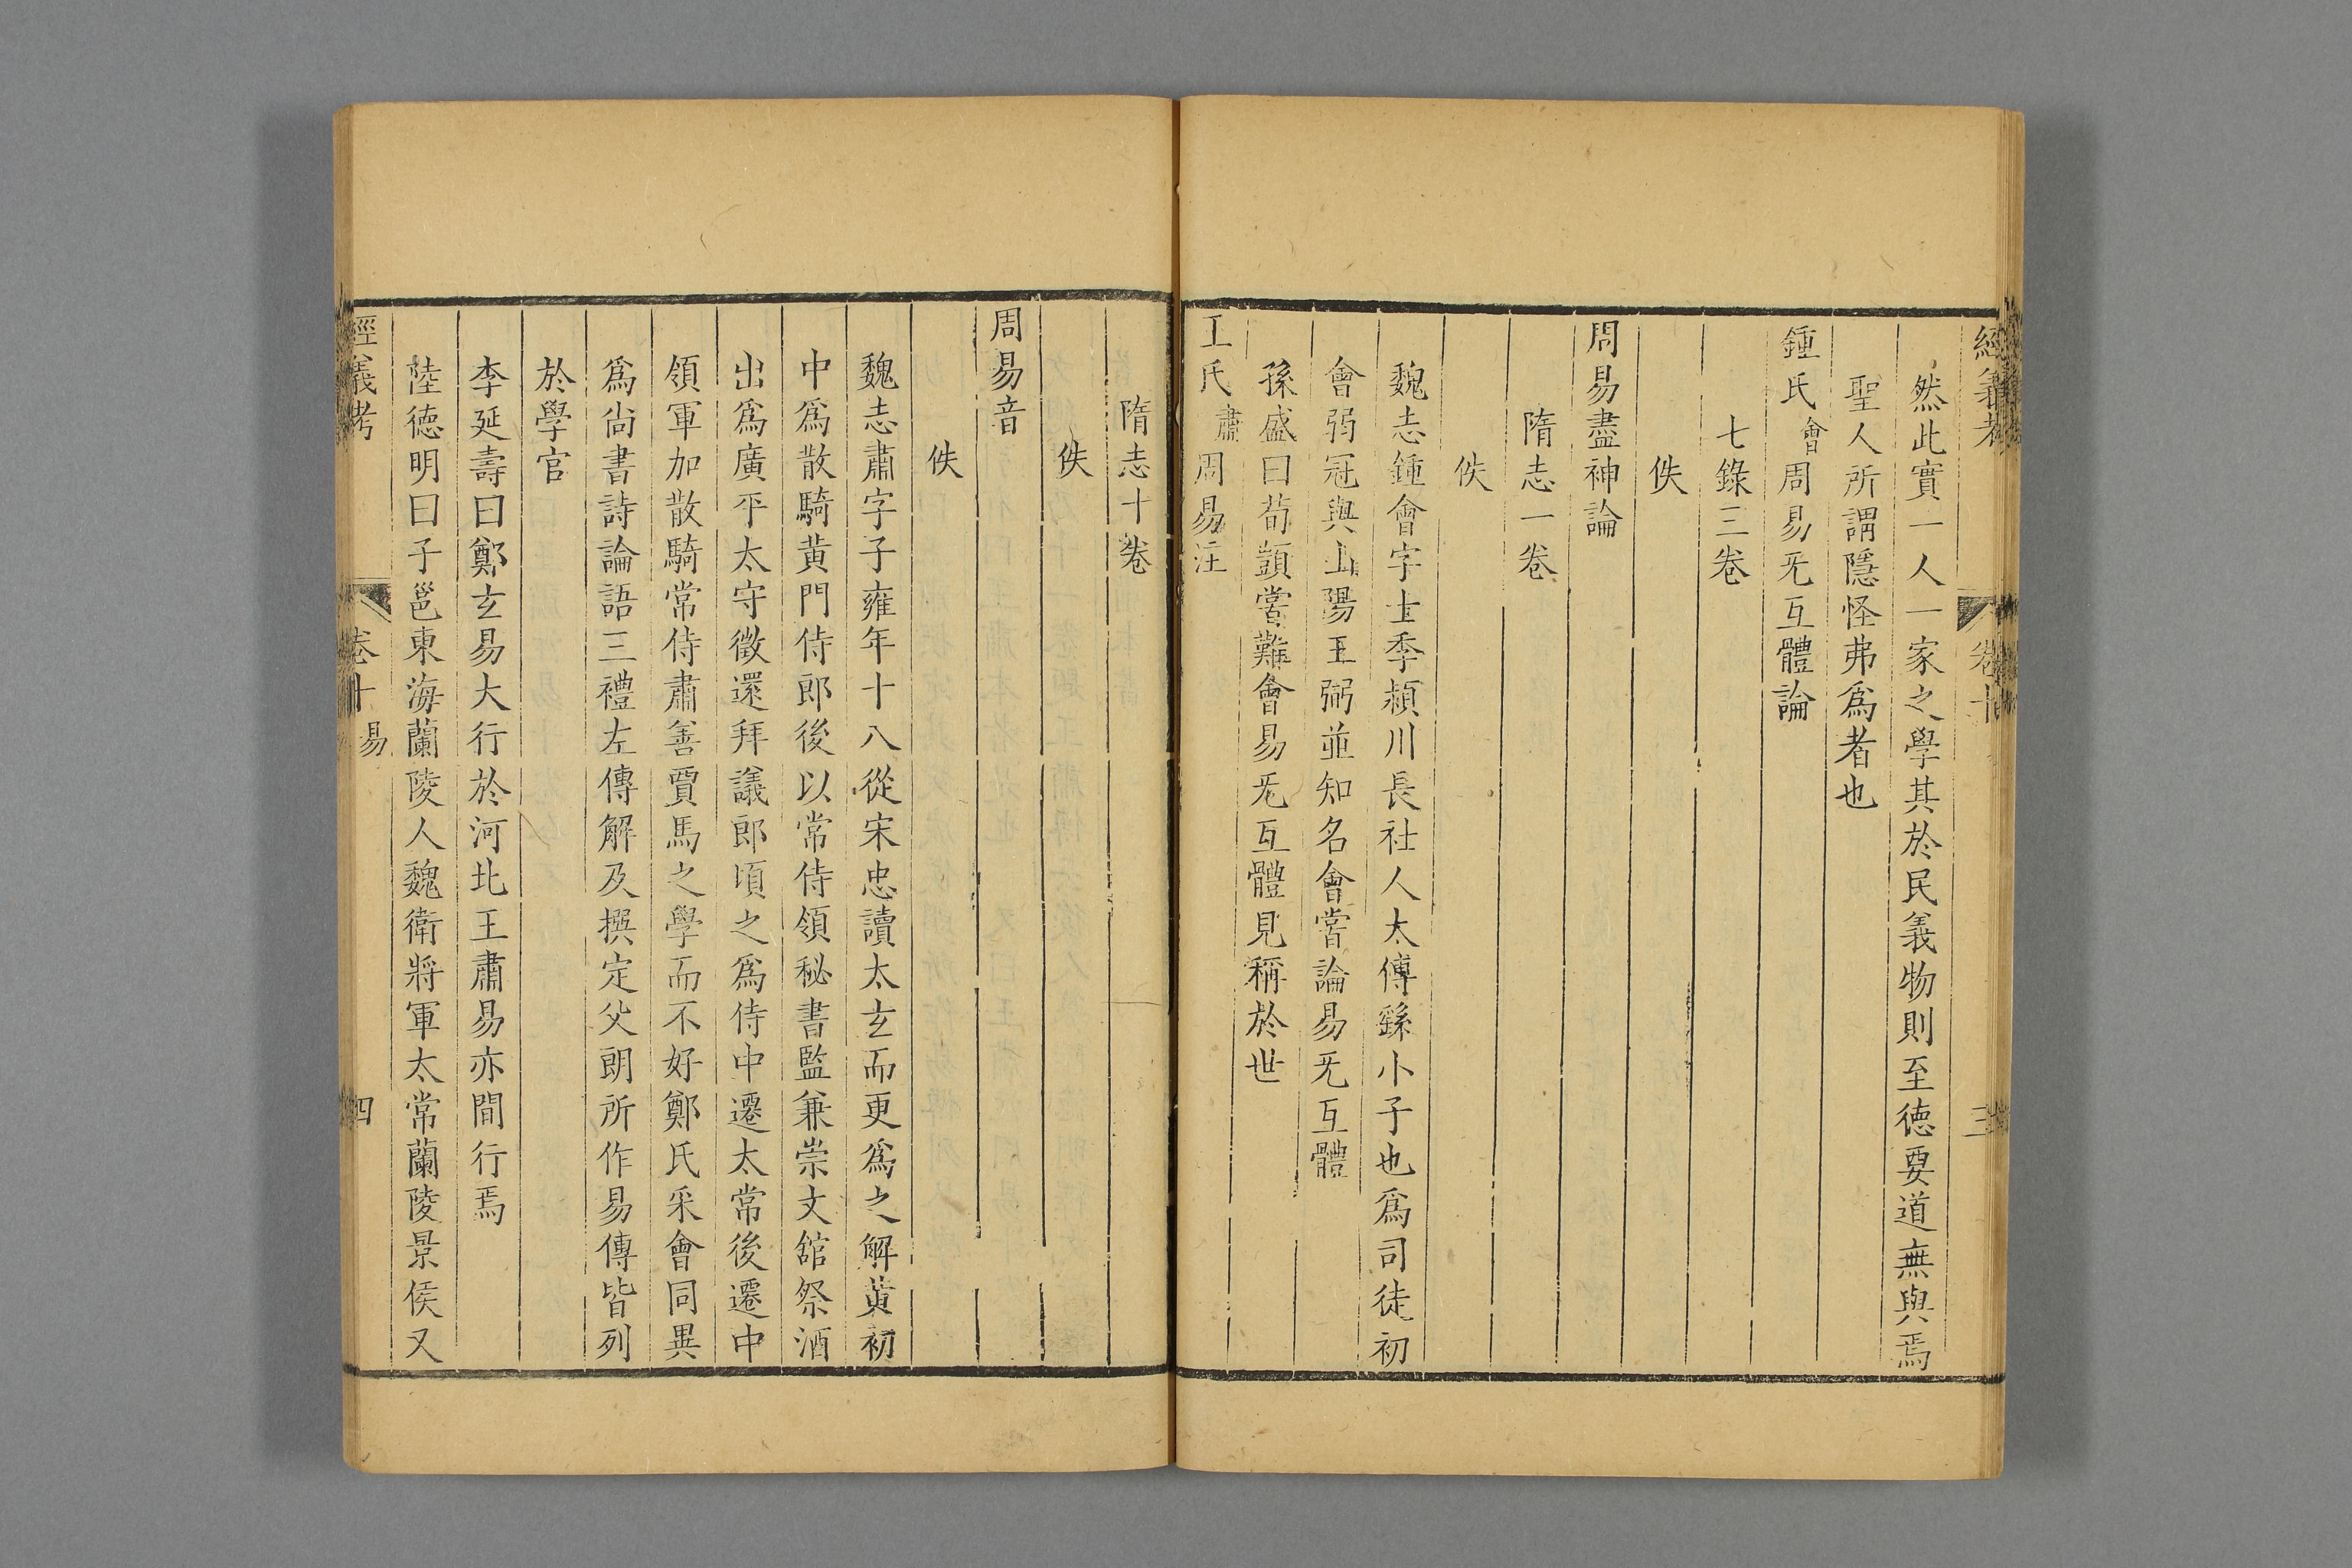 經義考 卷十 三
然此實一人一家之學其於民義物則至徳要道無與焉
聖人所謂隱怪弗爲者也
鍾氏會周易旡互體論
七錄三卷
佚
周易盡神論
隋志一卷
佚
魏志鍾會字士季頴川長社人太傅繇小子也爲司徒初
會弱冠與山陽王弼並知名會嘗論易旡互體
孫盛曰荀顗嘗難會易旡互體見稱於世
王氏肅周易注
隋志十卷
佚
周易音
佚
魏志肅字子雍年十八從宋忠讀太玄而更爲之解黄初
中爲散騎黄門侍郎後以常侍領秘書監兼崇文舘祭酒
出爲廣平太守徵還拜議郎頃之爲侍中遷太常後遷中
領軍加散騎常侍肅善賈馬之學而不好鄭氏采會同異
爲尚書詩論語三禮左傳解及撰定父朗所作易傳皆列
於學官
李延壽曰鄭玄易大行於河北王肅易亦間行焉
陸徳明曰子邕東海蘭陵人魏衛將軍太常蘭陵景侯又
經義考 卷十 易 四